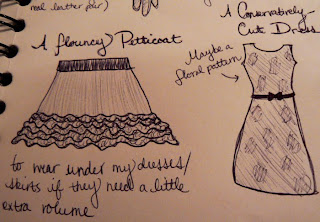 real leather for)
A Conservatively-
Cut Dress
A flouncey Petticoat
Maybe a
floral pattern
to wear under my dresses/
skirts if they need a little
extra volume